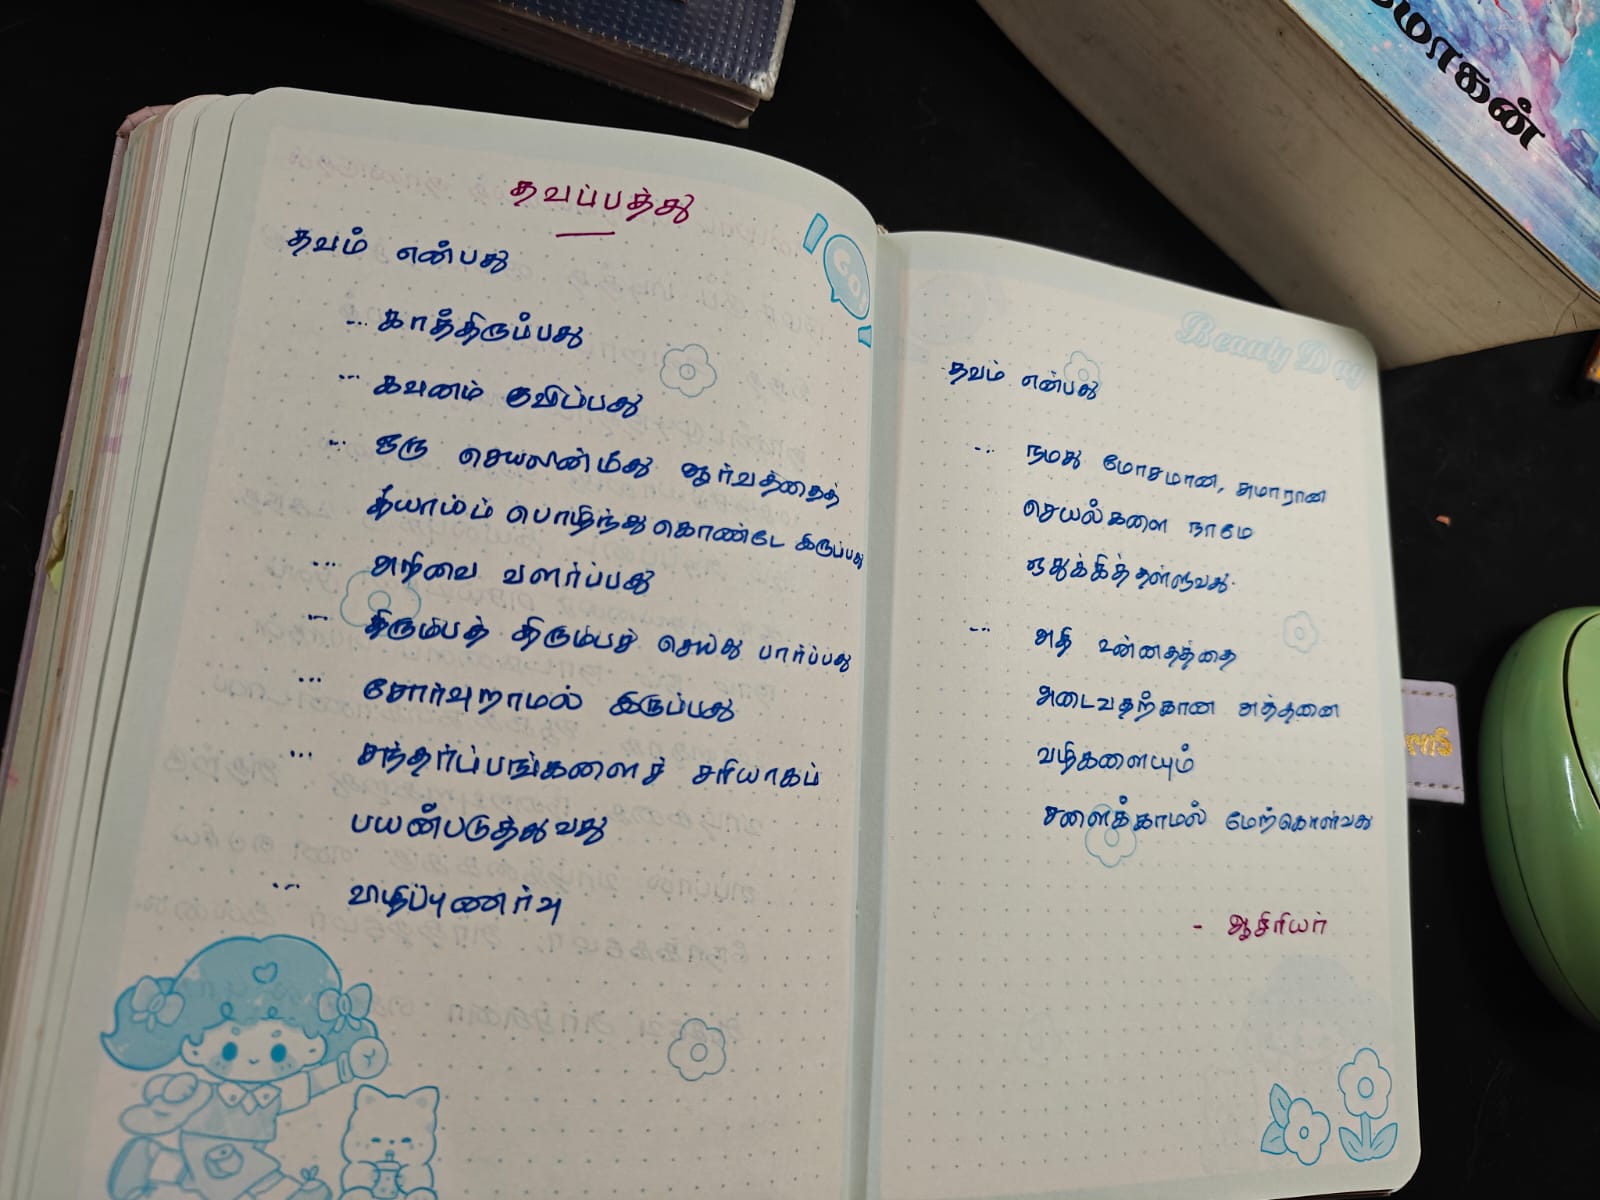 தவப்பத்து
தவம் என்பது
... காத்திருப்பது
... கவனம் குவிப்பது
... ஒரு செயலின்மீது ஆர்வத்தைத்
தீயாய்ப் பொழிந்துகொண்டே இருப்பது
... அறிவை வளர்ப்பது
... திரும்பத் திரும்பச் செய்து பார்ப்பது
... சோர்வுறாமல் இருப்பது
... சந்தர்ப்பங்களைச் சரியாகப்
பயன்படுத்துவது
... விழிப்புணர்வு
GO!
Beauty Day
தவம் என்பது
... நமது மோசமான, சுமாரான
செயல்களை நாமே
ஒதுக்கித்தள்ளுவது.
... அதி உன்னதத்தை
அடைவதற்கான அத்தனை
வழிகளையும்
சளைக்காமல் மேற்கொள்வது
- ஆசிரியர்